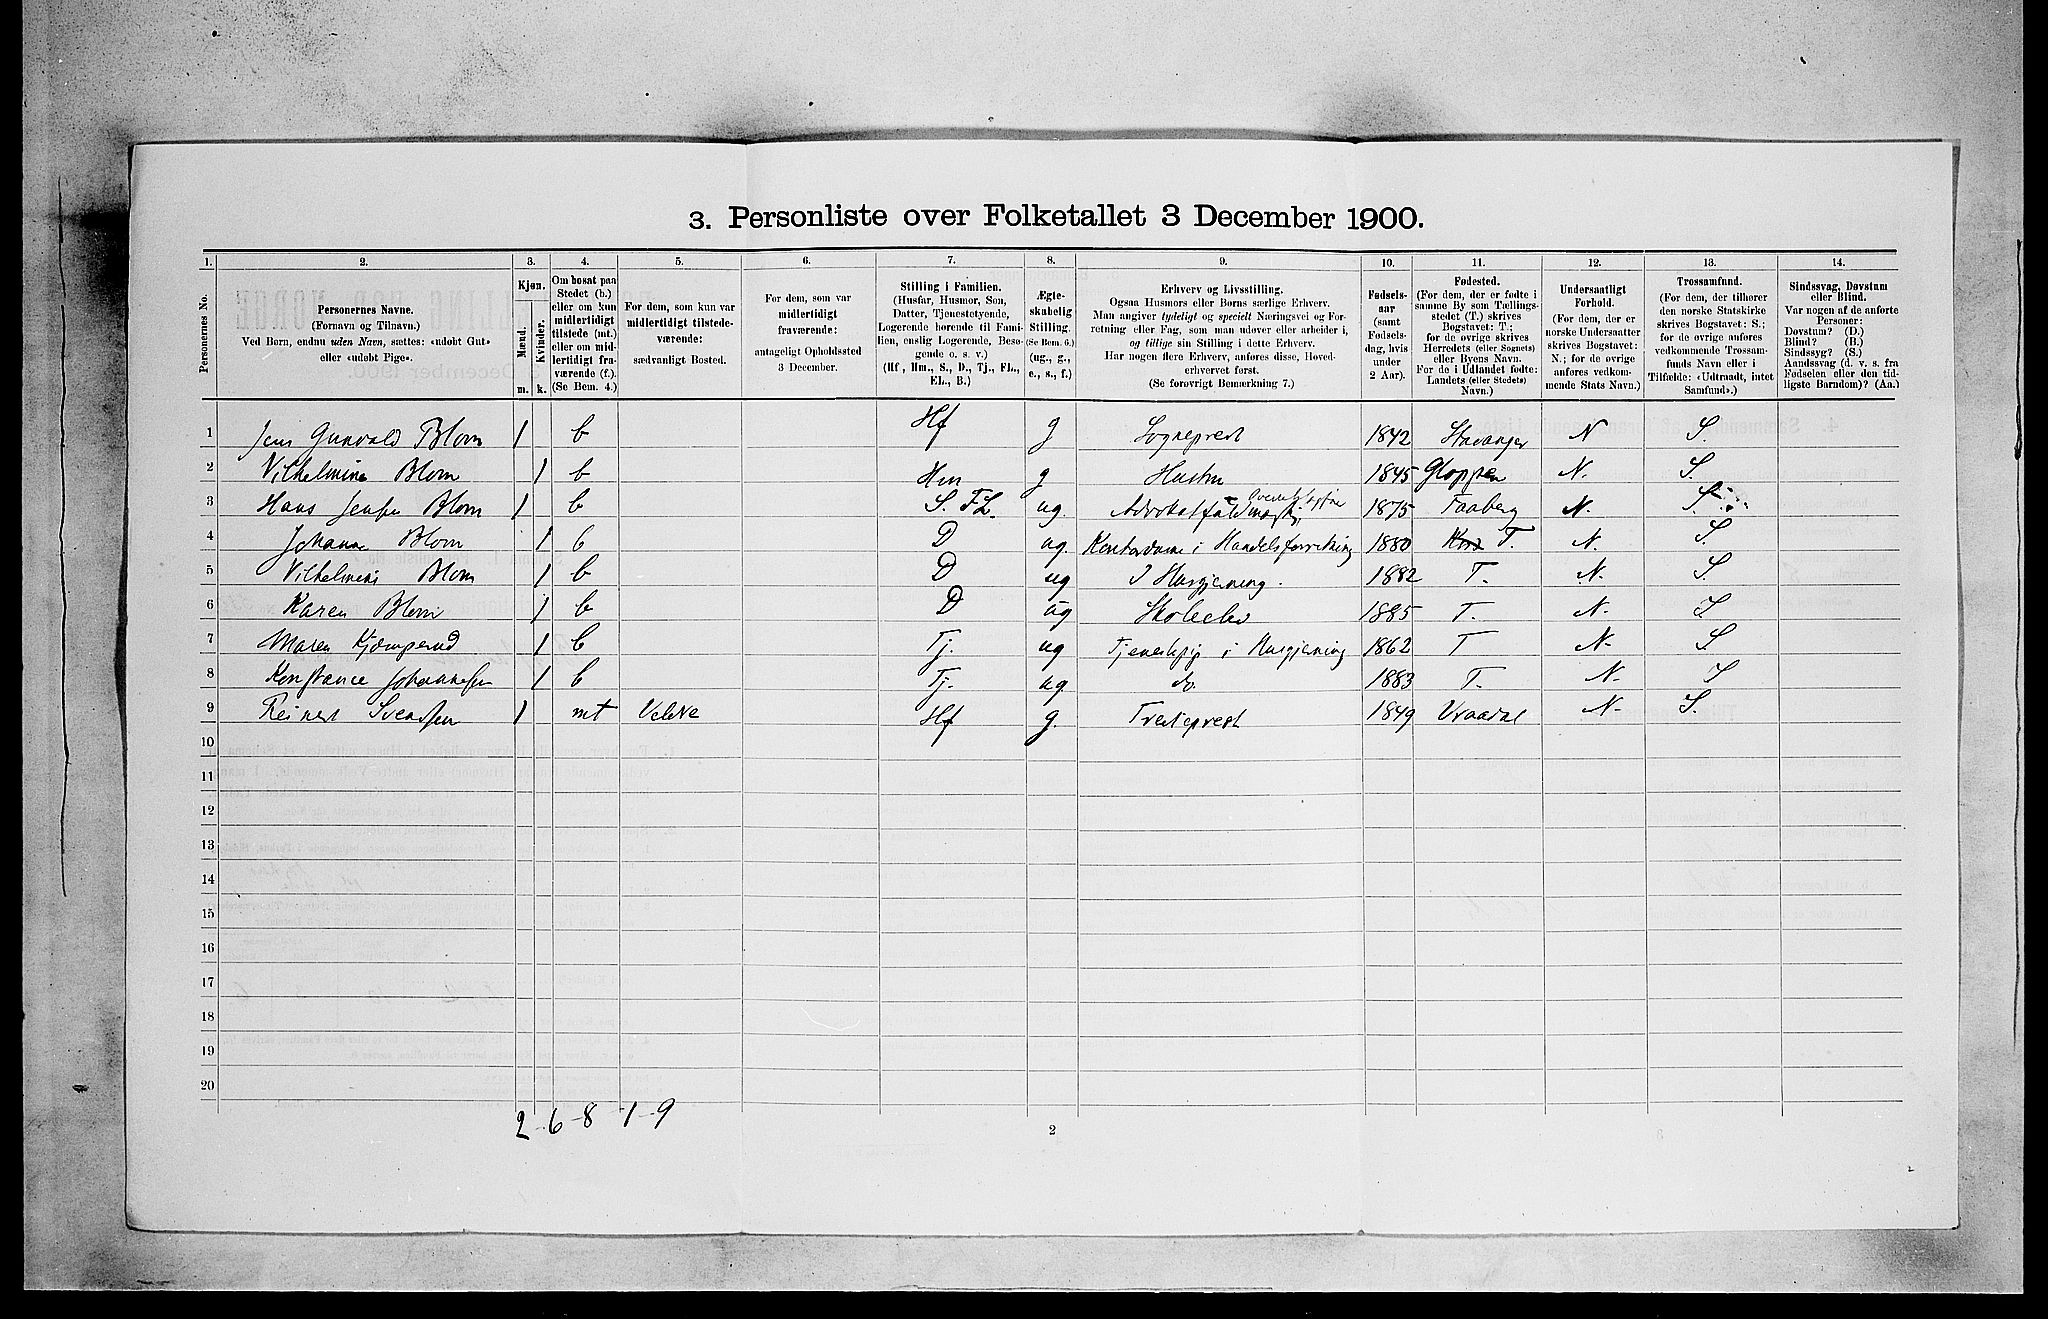 3. Personliste over Folketallet 3 December 1900.
1. 2. 3. 4. 5. 6. 7. 8. 9. 10. 11. 12. 13. 14.
Personernes No.
Personernes Navne.
(Fornavn og Tilnavn.)
Ved Børn, endnu uden Navn, sættes: «udøbt Gut»
eller «udøbt Pige».
Kjøn.
Mænd.
Kvinder.
m. k.
Om bosat paa
Stedet (b.)
eller om kun
midlertidigt
tilstede (mt.)
eller om mid-
lertidigt fra-
værende (f.).
(Se Bem. 4.)
For dem, som kun var
midlertidigt tilstede-
værende:
sædvanligt Bosted.
For dem, som var
midlertidigt
fraværende:
antageligt Opholdssted
3 December.
Stilling i Familien.
(Husfar, Husmor, Søn,
Datter, Tjenestetyende,
Logerende hørende til Fami-
lien, enslig Logerende, Besø-
gende o. s. v.)
(Hf, Hm., S., D., Tj., FL.,
EL., B.)
Ægte-
skabelig
Stilling.
(Se Bem. 6.)
(ug., g.,
e., s., f.)
Erhverv og Livsstilling.
Ogsaa Husmors eller Børns særlige Erhverv.
Man angiver tydeligt og specielt Næringsvei og For-
retning eller Fag, som man udøver eller arbeider i,
og tillige sin Stilling i dette Erhverv.
Har nogen flere Erhverv, anføres disse, Hoved-
erhvervet først.
(Se forøvrigt Bemærkning 7.)
Fødsels-
aar
(samt
Fødsels-
dag, hvis
under
2 Aar).
Fødested.
(For dem, der er fødte i
samme By som Tællings-
stedet (T.) skrives
Bogstavet: T.;
for de øvrige skrives
Herredets (eller Sognets)
eller Byens Navn.
For de i Udlandet fødte:
Landets (eller Stedets)
Navn.)
Undersaatligt
Forhold.
(For dem, der er
norske Undersaatter
skrives Bogstavet:
N.; for de øvrige
anføres vedkom-
mende Stats Navn.)
Trossamfund.
(For dem, der tilhører
den norske Statskirke
skrives Bogstavet: S.;
for de øvrige anføres
vedkommende Trossam-
funds Navn eller i
Tilfælde: «Udtraadt, intet
Samfund».)
Sindssvag, Døvstum
eller Blind.
Var nogen af de anførte
Personer:
Døvstum? (D.)
Blind? (B.)
Sindssyg? (S.)
Aandssvag (d. v. s. fra
Fødselen eller den tid-
ligste Barndom)? (Aa.)
1 Jens Gunvald Blom 1 b Hf g Sogneprest 1842 Stavanger N S.
2 Vilhelmine Blom 1 b Hm g Hustru 1845 Gloppen N. S.
3 Hans Jensen Blom 1 b S. FL. ug. Advokatfuldmægtig 1875 Faaberg N. S.
4 Johanne Blom 1 b D ug. Kontordame i Handelsforretning 1880 T. N. S.
5 Vilhelmine Blom 1 b D ug I Husgjerning. 1882 T. N. S.
6 Karen Blom 1 b D ug Skoleelev 1885 T. N. S
7 Maren Kjømperud 1 b Tj. ug Tjenestepige i Husgjerning 1862 T N. S
8 Konstance Johannesen 1 b Tj. ug do. 1883 T. N. S
9 Reinert Svensen 1 mt Hf g. Prest 1849 Vraadal N. S.
10
11
12
13
14
15
16
17
18
19
20
2-6-8-1-9
2
2